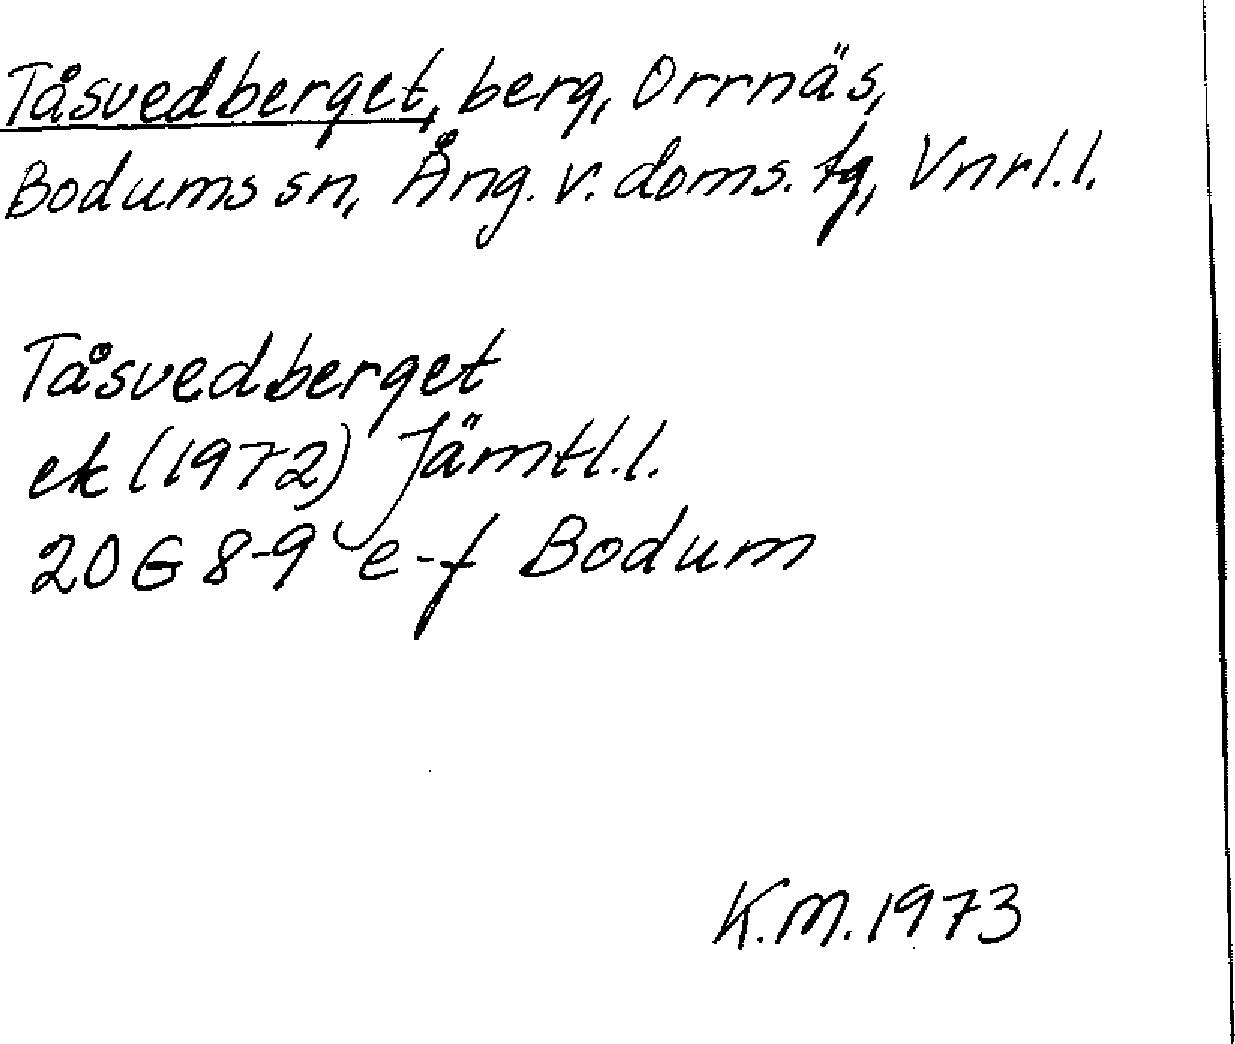 Tåsvedberget, berg, Orrnäs,
Bodums sn, Ång. v. doms. tg, Vnrl.l.
Tåsvedberget
ek (1972) Jämtl.l.
20G 8-9 e-f Bodum
K.M. 1973